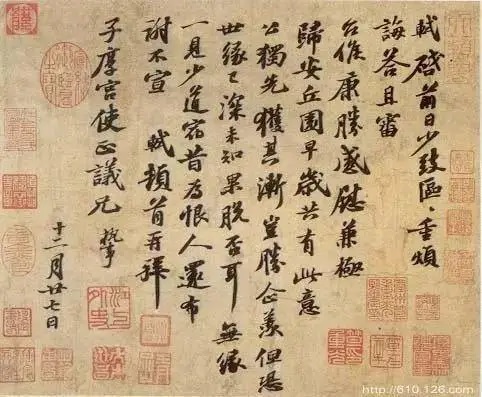 軾啓前日少致區〻重煩
誨答且審
台候康勝感慰兼極
歸安丘園早歲共有此意
公獨先獲其漸豈勝企羨但恐
世緣已深未知果脫否耳無緣
一見少道宿昔為恨人還布
謝不宣 軾頓首再拜
子厚宮使正議兄 執事
十二月廿七日
http://610.126.com